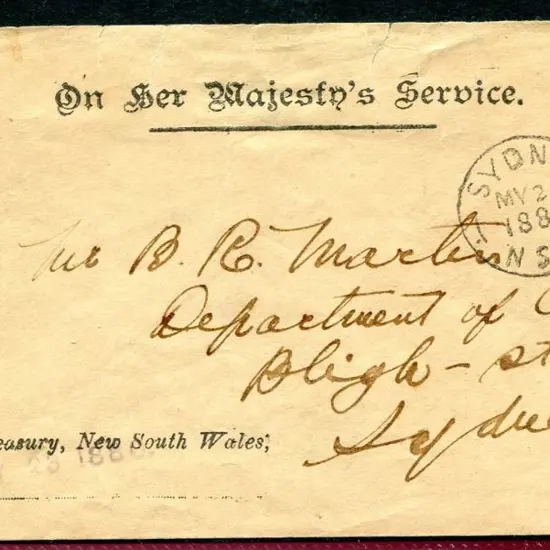 On Her Majesty's Service.
SYDN
MY 2
188
NS
B. R. Martin
Department of
Bligh - st
Sydne
easury, New South Wales,
23 188